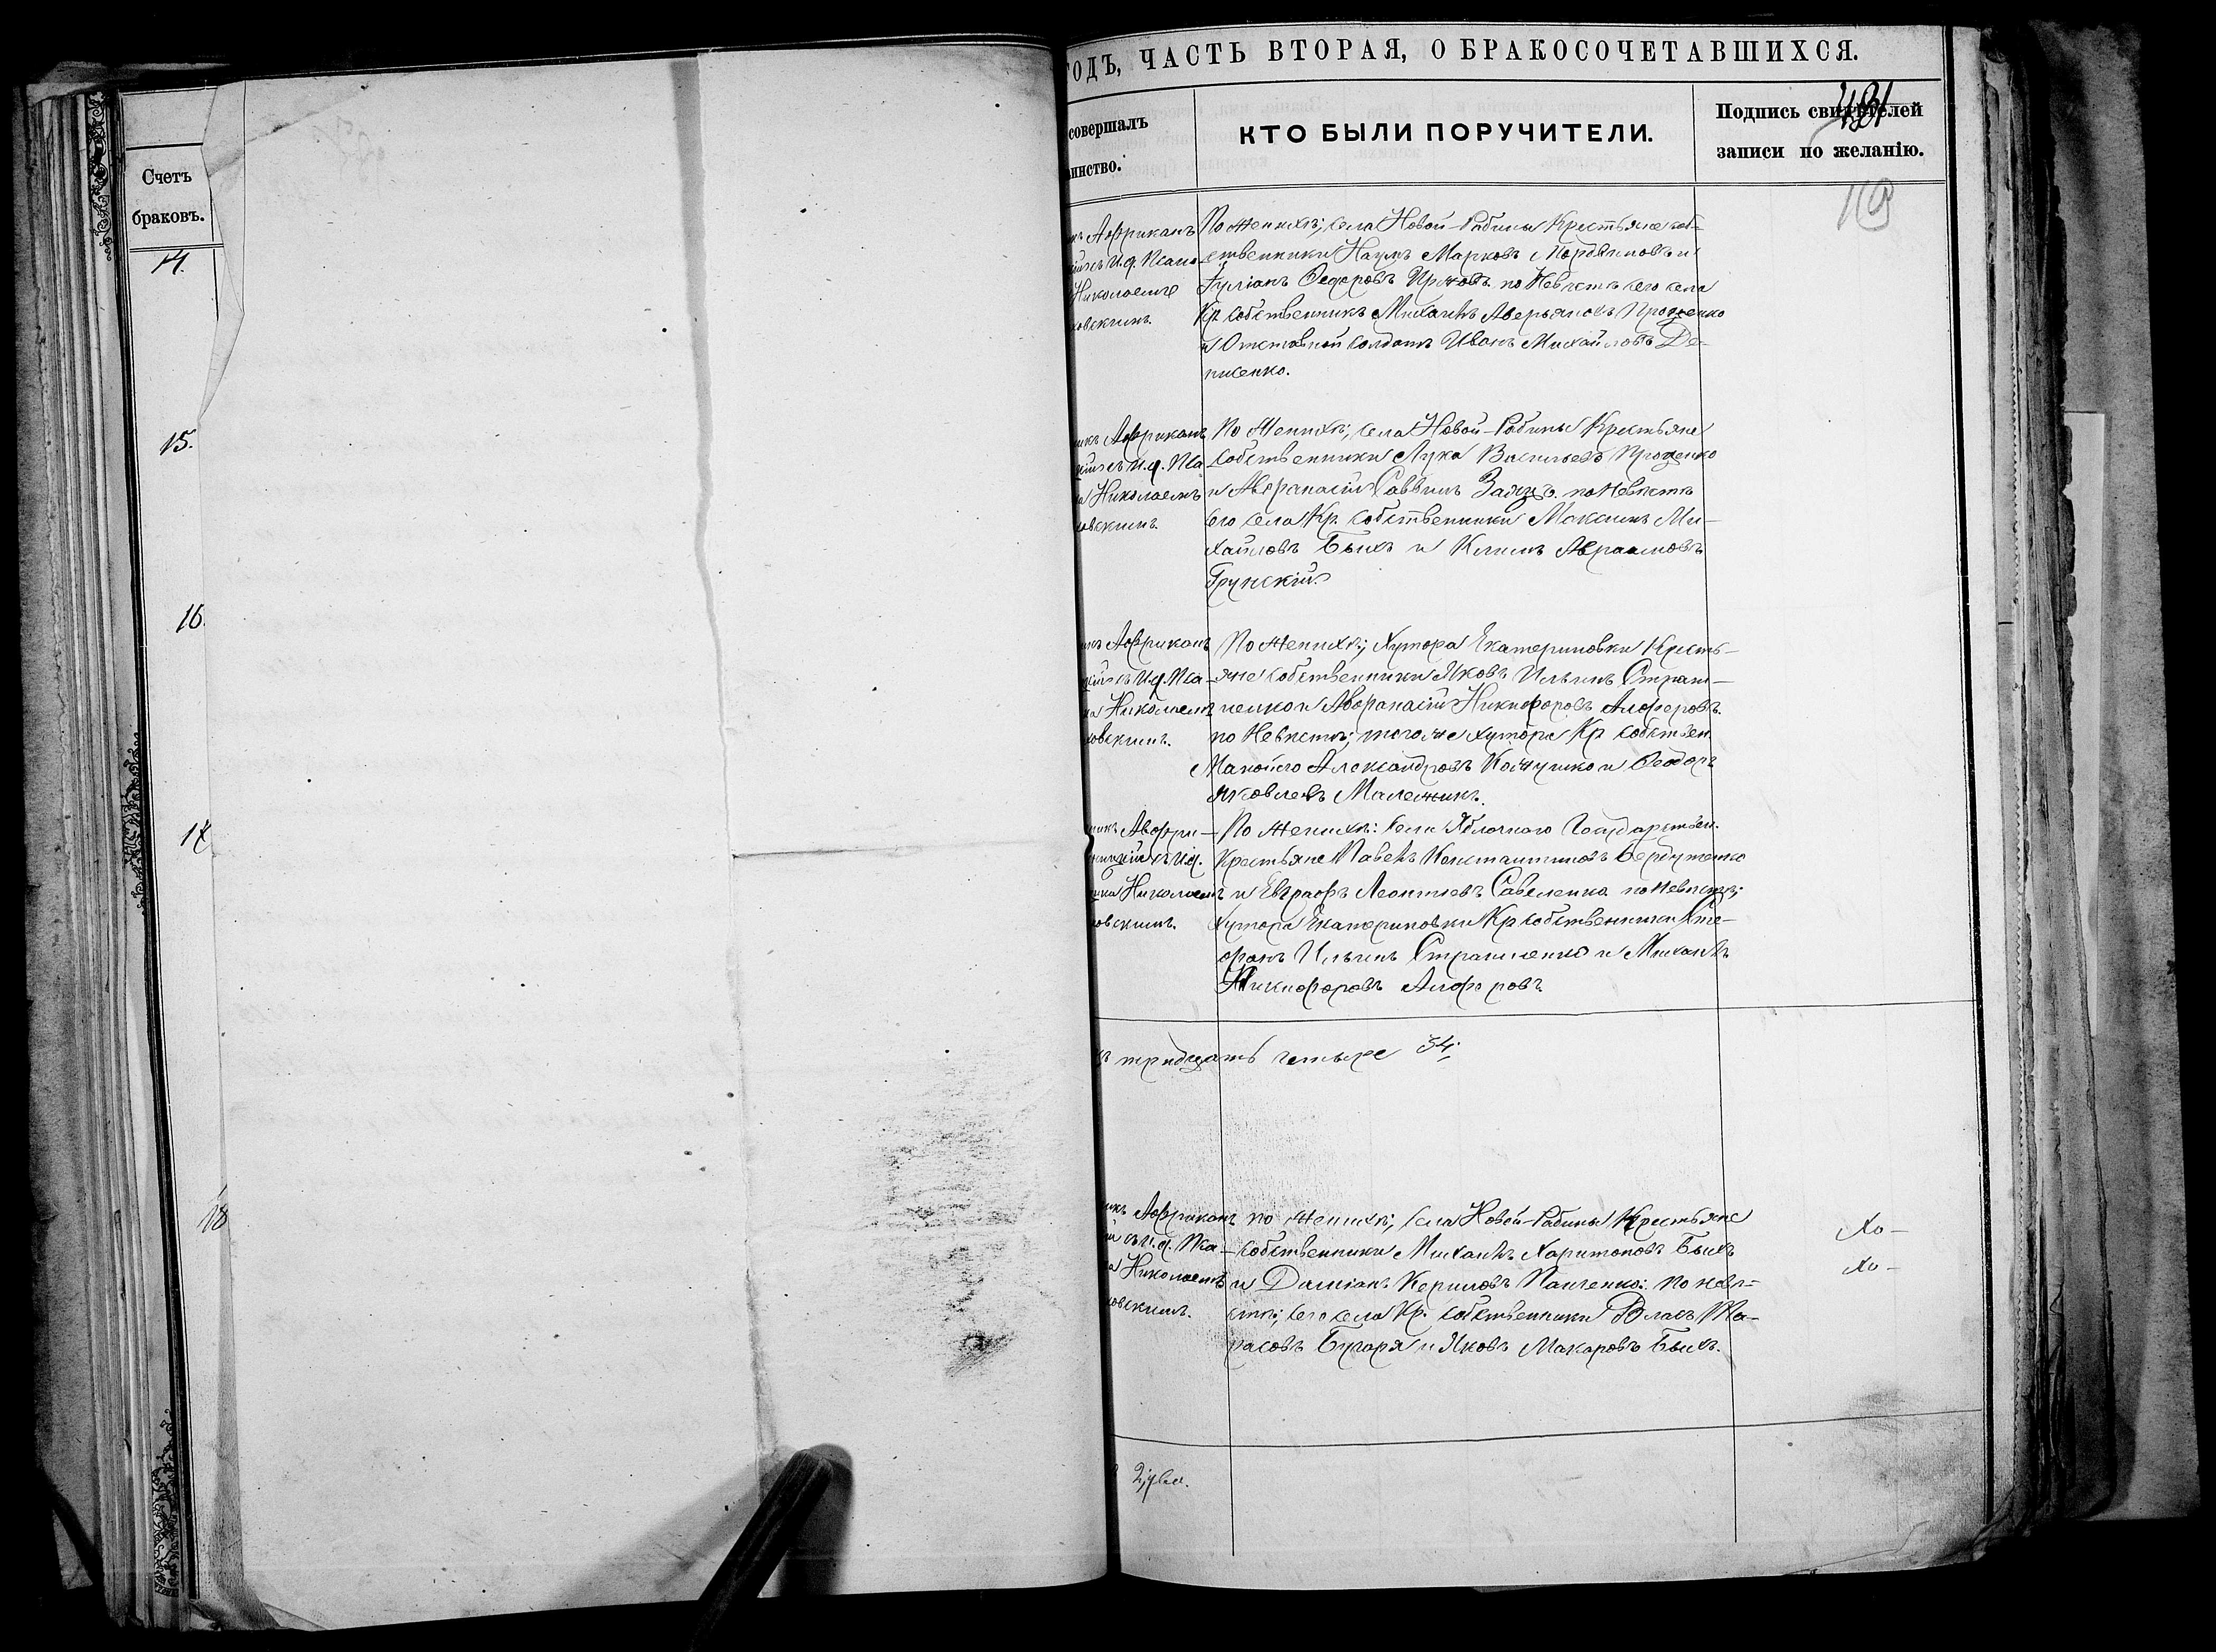 Счетъ
браковъ.
14.
15.
16.
17
18
ГОДЪ, ЧАСТЬ ВТОРАЯ, О БРАКОСОЧЕТАВШИХСЯ.
совершалъ
инство.
КТО БЫЛИ ПОРУЧИТЕЛИ.
Подпись свидѣтелей
записи по желанію.
481
Африканъ
Николаемъ
овскимъ.
По Женихѣ; села Новой-Рабины Крестьяне соб-
ственники Наумъ Марковъ и
Іуліанъ Федоровъ по Невѣстѣ сего села
Кр. собственникъ Михаилъ Аверьяновъ Проценко
и Отставной солдатъ Иванъ Михайловъ Де-
нисенко.
икъ Африканъ
кій съ и.д. Пса-
а Николаемъ
овскимъ.
По Женихѣ; села Новой-Рабины Крестьяне
собственники Лука Васильевъ Проценко
и Афанасій Саввинъ Заяцъ. по Невѣстѣ
сего села Кр. собственники Максимъ Ми-
хайловъ Быкъ и Климъ Авраамовъ
Грунскій.
икъ Африканъ
кій съ и.д. Пса-
а Николаемъ
овскимъ.
По Женихѣ; Хутора Екатериновки Кресть-
яне собственники Яковъ Ильинъ Страш-
ненко и Афанасій Никифоровъ Алферовъ.
по Невѣстѣ; того же хутора Кр. собствен.
Манойло Александровъ Кожушко и Ѳеодоръ
Яковлевъ Малежикъ.
икъ Афри-
ицкій съ и.д.
ика Николаемъ
овскимъ.
По Женихѣ: села Яблочнаго Государствен.
Крестьяне Павелъ Константиновъ Бердутенко
и Евграфъ Леонтьевъ Савеленко по Невѣстѣ;
Хутора Екатериновки Кр. собственники Сте-
фанъ Ильинъ Страшненко и Михаилъ
Никифоровъ Алферовъ
ъ тридцать четыре 34.
икъ Африканъ
й съ и.д. Пса-
а Николаемъ
овскимъ.
по Женихѣ; села Новой-Рабины Крестьяне
собственники Михаилъ Харитоновъ Быкъ
и Даміанъ Кериловъ Панченко: по невѣ-
стѣ; сего села Кр. собственники Власъ Та-
расовъ Бугаря и Яковъ Макаровъ Быкъ.
Хо-
Хо-
2, два.